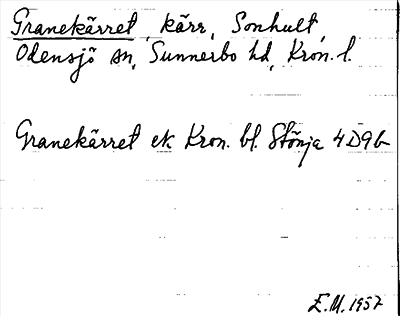 Granekärret, kärr, Sonhult,
Odensjö sn, Sunnerbo hd, Kron. l.
Granekärret ek Kron. bl. Stönja 4D9b
E.M. 1957